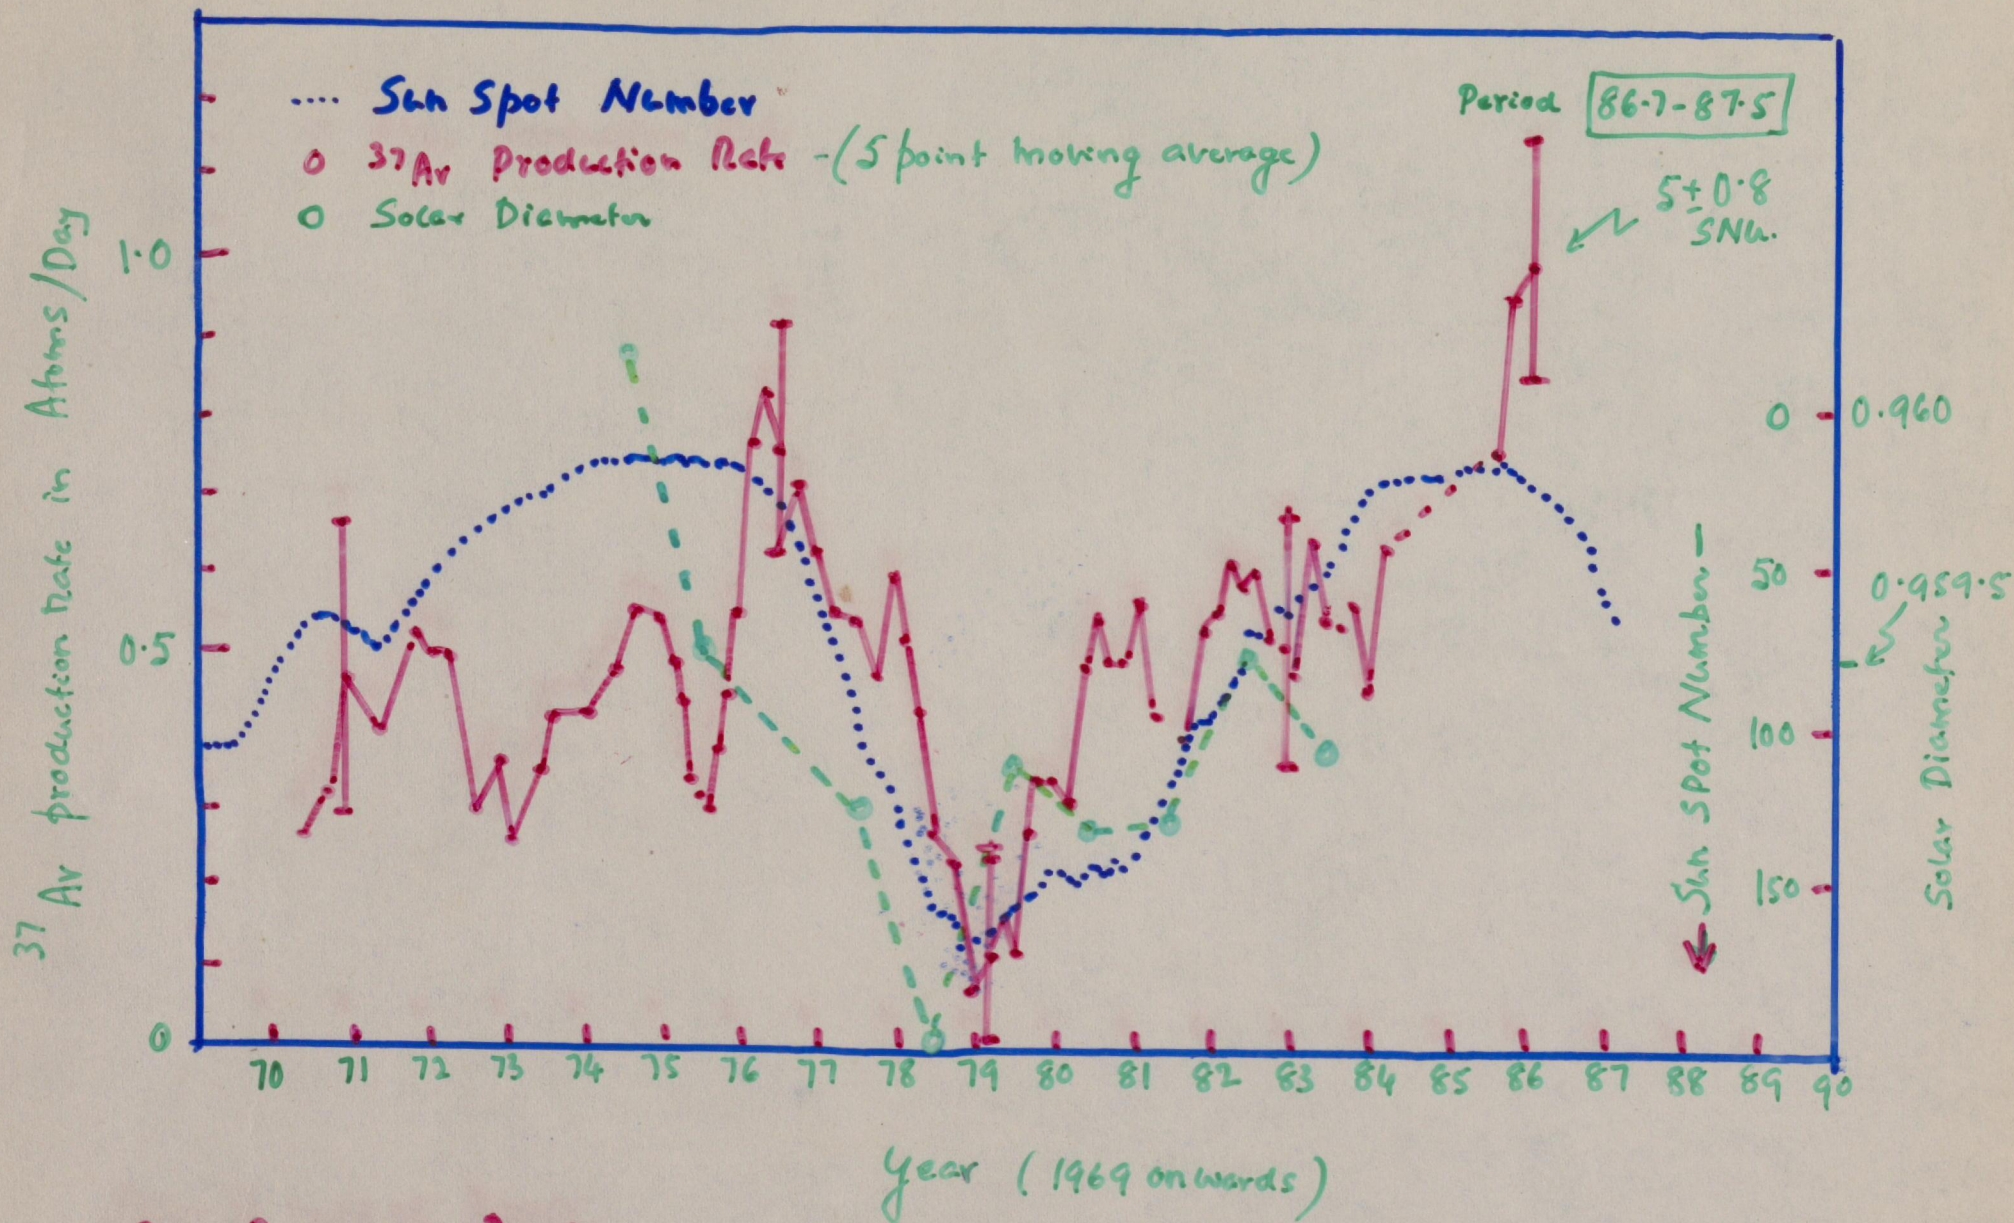 Sun Spot Number
37Ar Production Rate -(5 point moving average)
Solar Diameter
Period 86.7-87.5
5±0.8
SNU.
37Ar production Rate in Atoms/Day
1.0
0.5
0
0
50
100
150
0.960
0.959.5
Sun Spot Number
Solar Diameter
70 71 72 73 74 75 76 77 78 79 80 81 82 83 84 85 86 87 88 89 90
Year (1969 onwards)